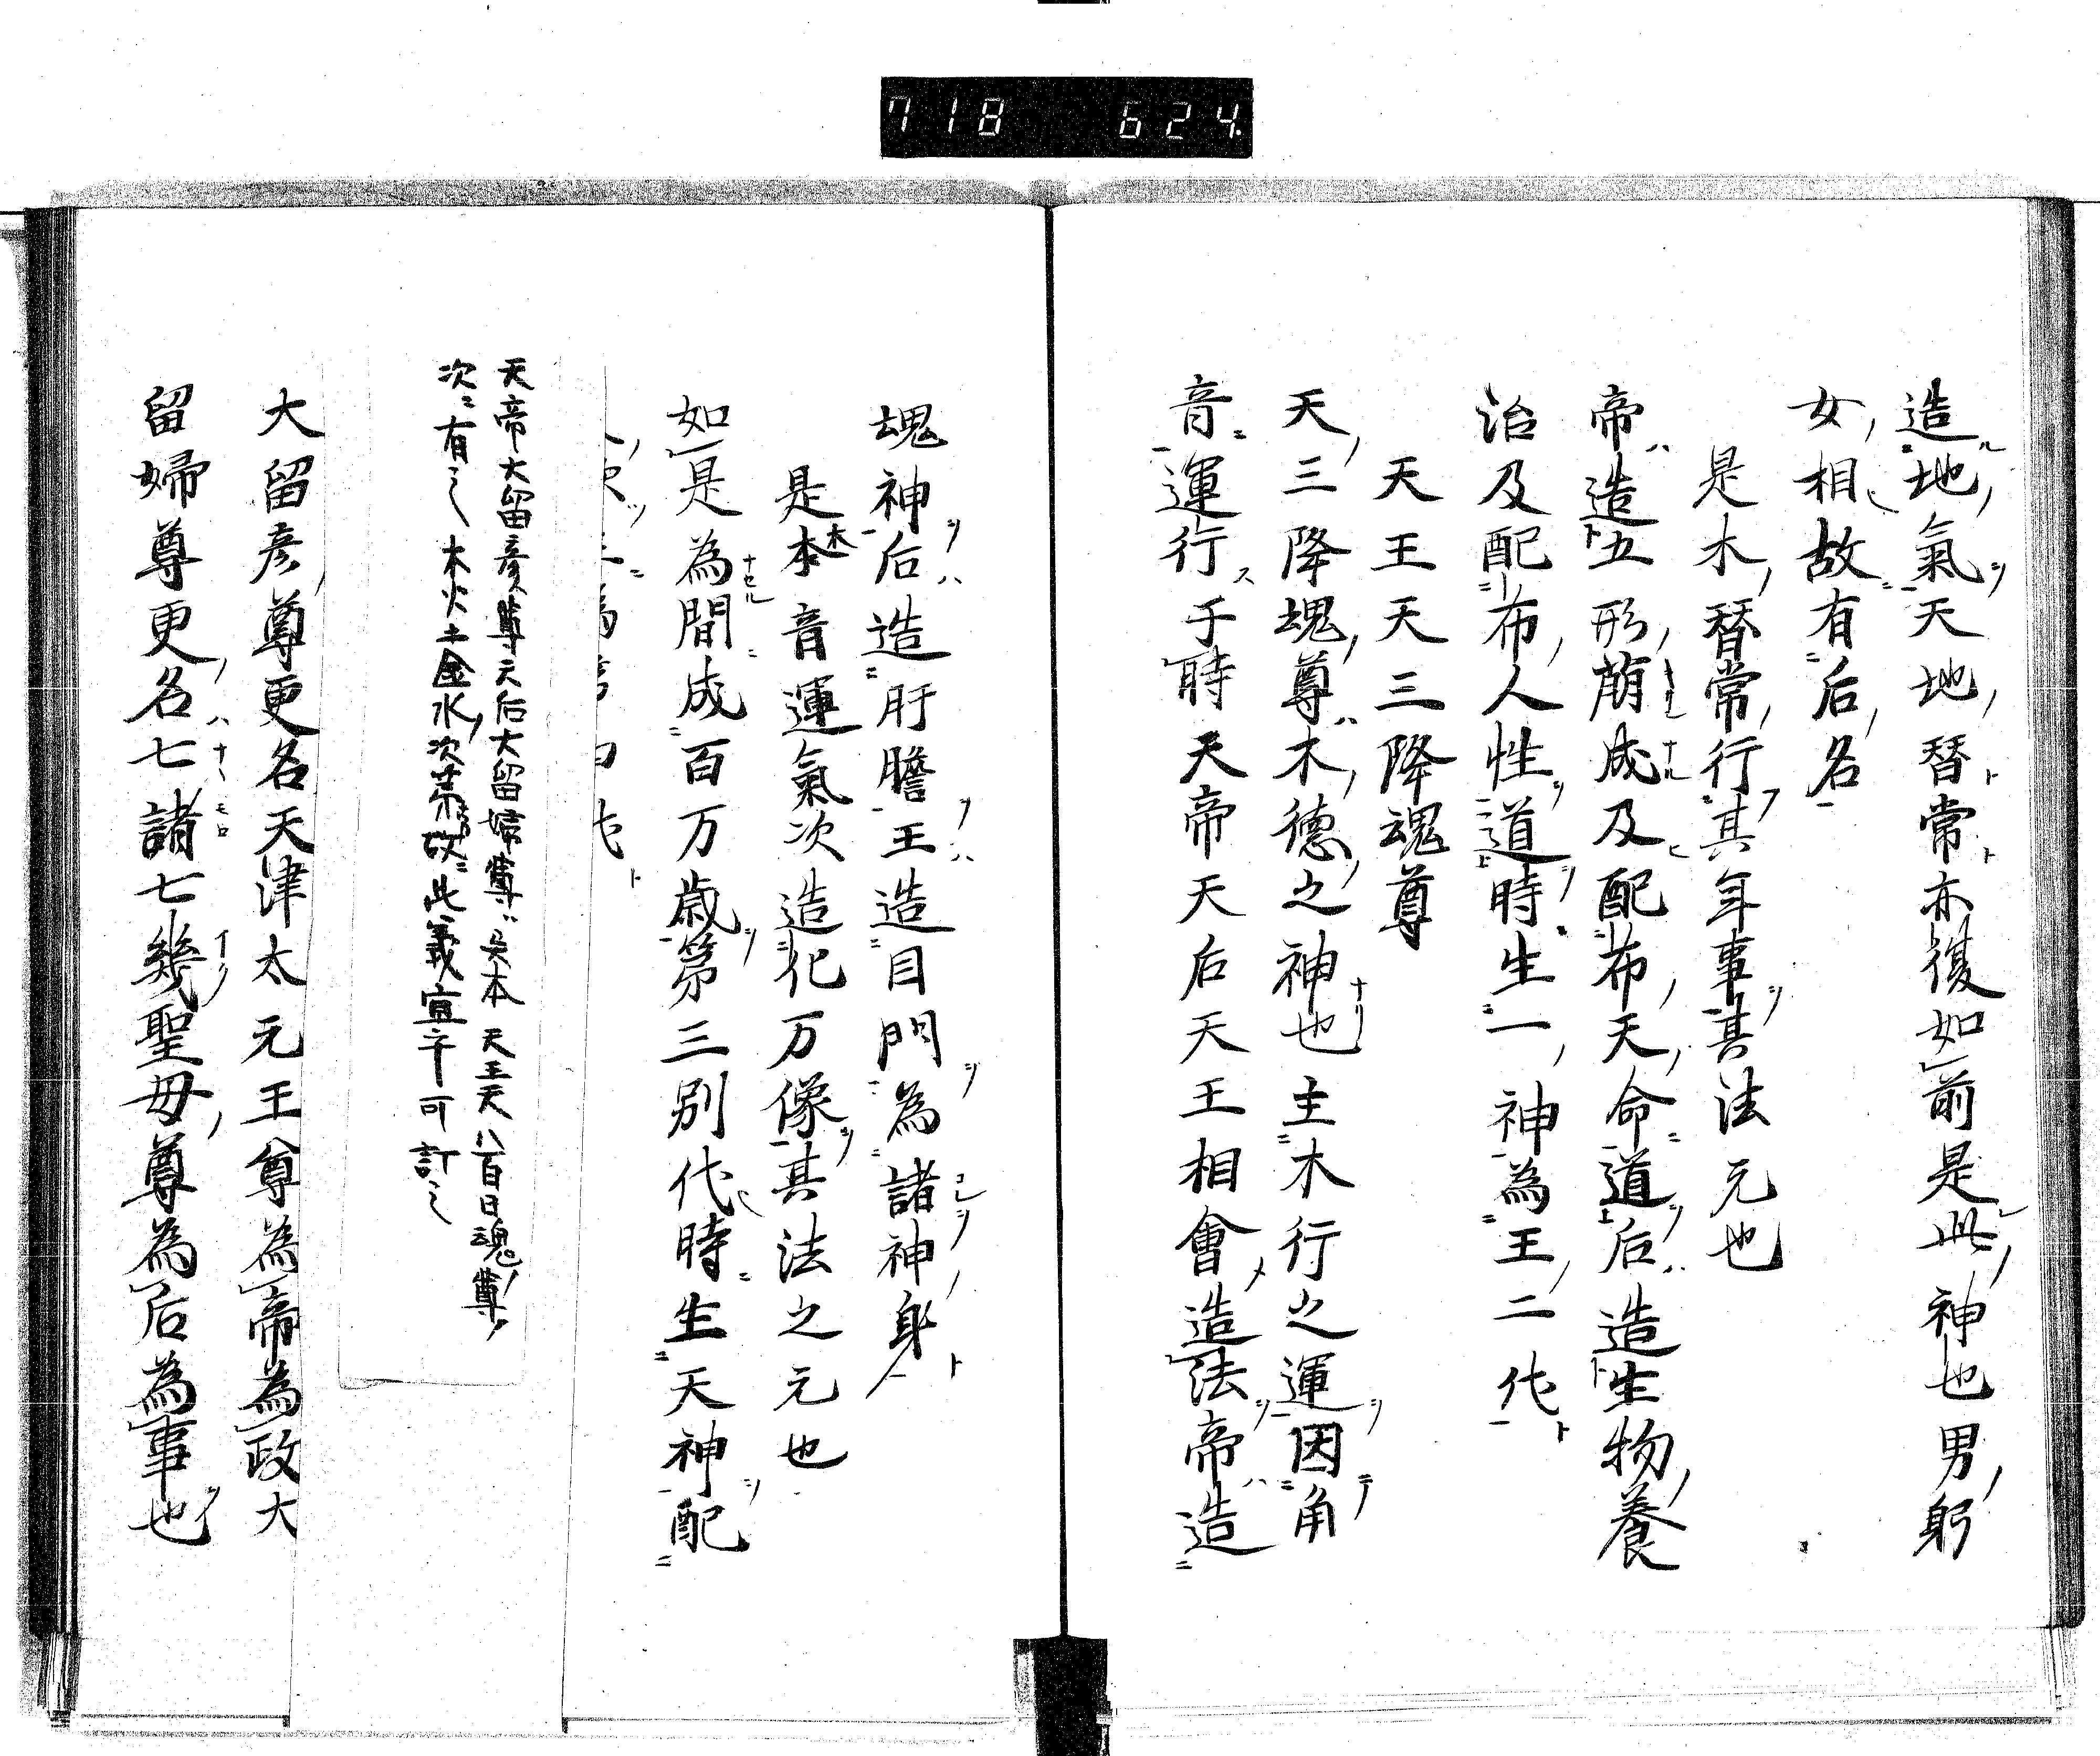 718 624
造地氣天地替常亦復如前是此神也男躬
女相故有后名
是木替常行其年事其法元也
帝造五形萠成及配布天命道后造生物養
治及配布人性道時生一神為王二代
天王天三降魂尊
天三降塊尊木德之神也主木行之運因角
音運行于時天帝天后天王相會造法帝造
魂神后造肝膽王造目門為諸神身
是本木音運氣次造化万像其法之元也
如是為間成百万歳第三別代時生天神配
天帝大留彦尊天后大留婦尊ハ異本天王天八百日魂尊ノ
次ニ有之木火土金水ノ次第故ニ此義宜乎可訂之
大留彦尊更名天津太元王尊為帝為政大
留婦尊更名七諸七幾聖母尊為后為事也